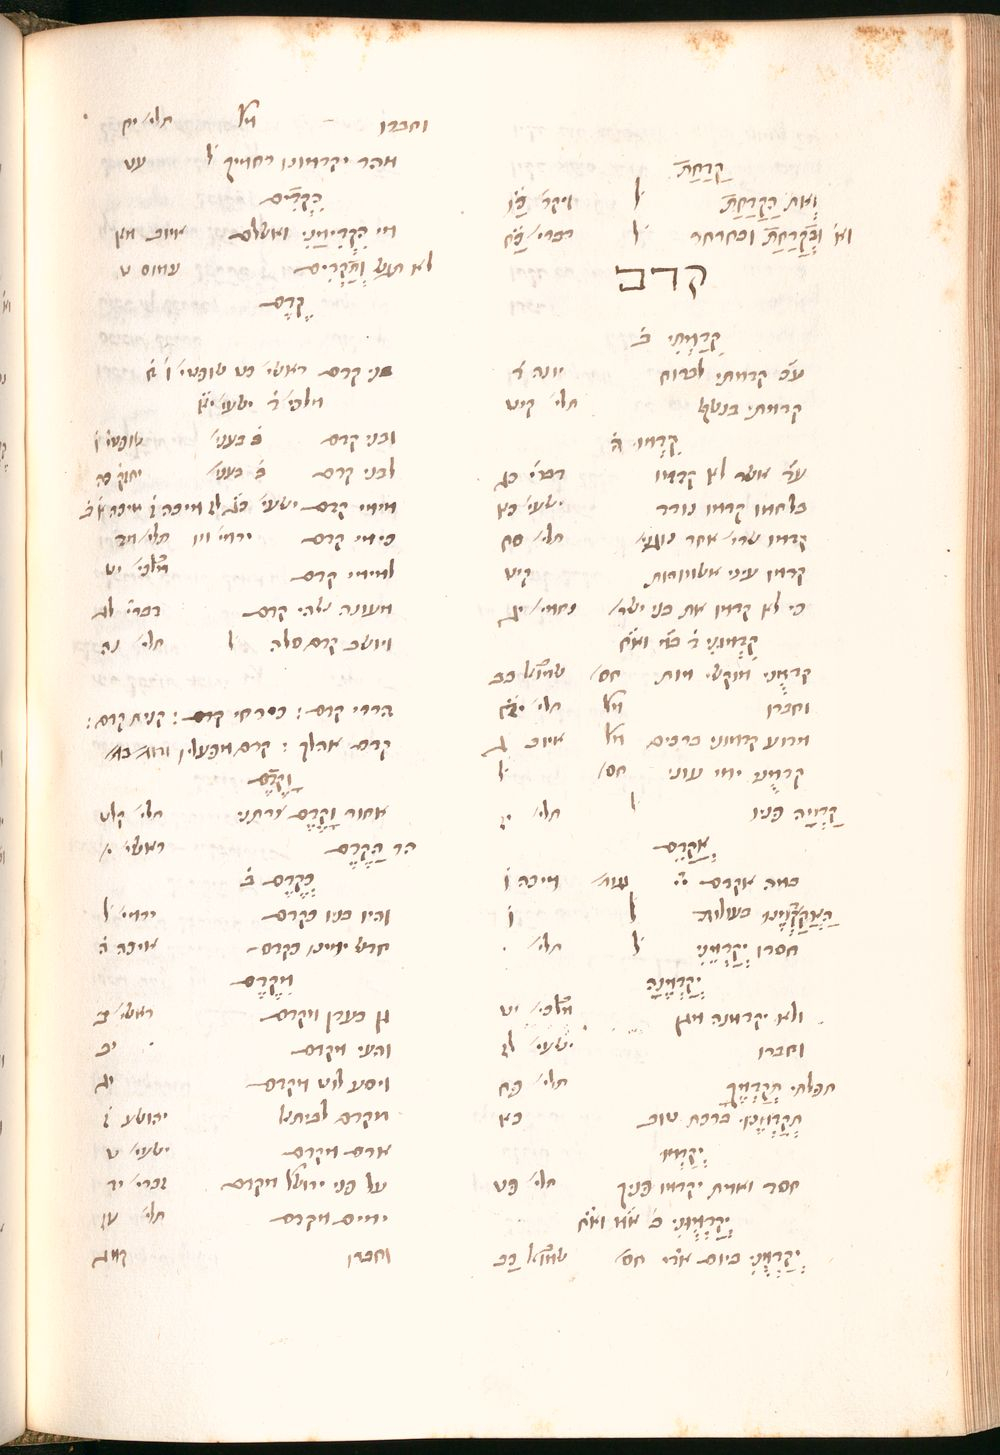 קרחת
ואת הקרחת ל ויקר׳
קדם
קדמתי ב
על כן קדמתי לברוח יונה ד
קדמתי בנשף תלי׳ קיט
קדמו ה
על אשר לא קדמו דברי׳ כג
בלחמו קדמו נודד ישעי׳ כא
קדמו שרי׳ אחר נוגני׳ תלי׳ סח
קדמו עיני אשמורות קיט
כי לא קדמו את בני ישר׳ נחמי׳ יג
קדמוני
קדמני מוקשי מות חס׳ שמואל כב
וחברו תלי׳ יח
מדוע קדמוני ברכים מל איוב ג
קדמני ימי עוני חס׳ ל
קדמה פניו ל תלי׳ יז
אקדם
במה אקדם מיכה ו
האקדמנו בעולות ל ו
חסדו יקדמני ל תלי׳
יקדמנה
ולא יקדמנה מגן מלכי׳ יט
וחברו ישעי׳ לז
תפלתי תקדמך תלי׳ פח
תקדמנו ברכת טוב כא
יקדמו
חסד ואמת יקדמו פניך תלי׳ פט
יקדמוני
יקדמני ביום אידי חס׳ שמואל כב
וחברו מל תלי׳ יח
מהר יקדמונו רחמיך ל עט
הקדים
מי הקדימני ואשלם איוב מא
לא תגש ותקדים עמוס ט
קדם
בני קדם ראשי׳ כט שופטי׳ ו ח
מלכי׳ ה ישעי׳ יא
ובני קדם ב בעני׳ שופטי׳ ו
לבני קדם ב בעני׳ יחזק׳ כה
מימי קדם ישעי׳ מיכה
כימי קדם ירמי׳ מו תלי׳
למימי קדם מלכי׳ יט
מעונה אלהי קדם דברי׳ לג
ויושב קדם סלה ל תלי׳ נה
הררי קדם : כירחי קדם : קנית קדם :
קדם אהלך : קדם מפעליו
וקדם
אחור וקדם צרתני תלי׳ קלט
הר הקדם ראשי׳ י
כקדם ב
והיו בניו כקדם ירמי׳ ל
חדש ימינו כקדם איכה ה
מקדם
גן בעדן מקדם ראשי׳ ב
והעי מקדם יב
ויסע לוט מקדם יג
מקדם לביתאל יהושע ז
ארם מקדם ישעי׳ ט
על פני ירושל׳ מקדם זכרי׳ יד
ימים מקדם תלי׳ עז
וחברו קמג